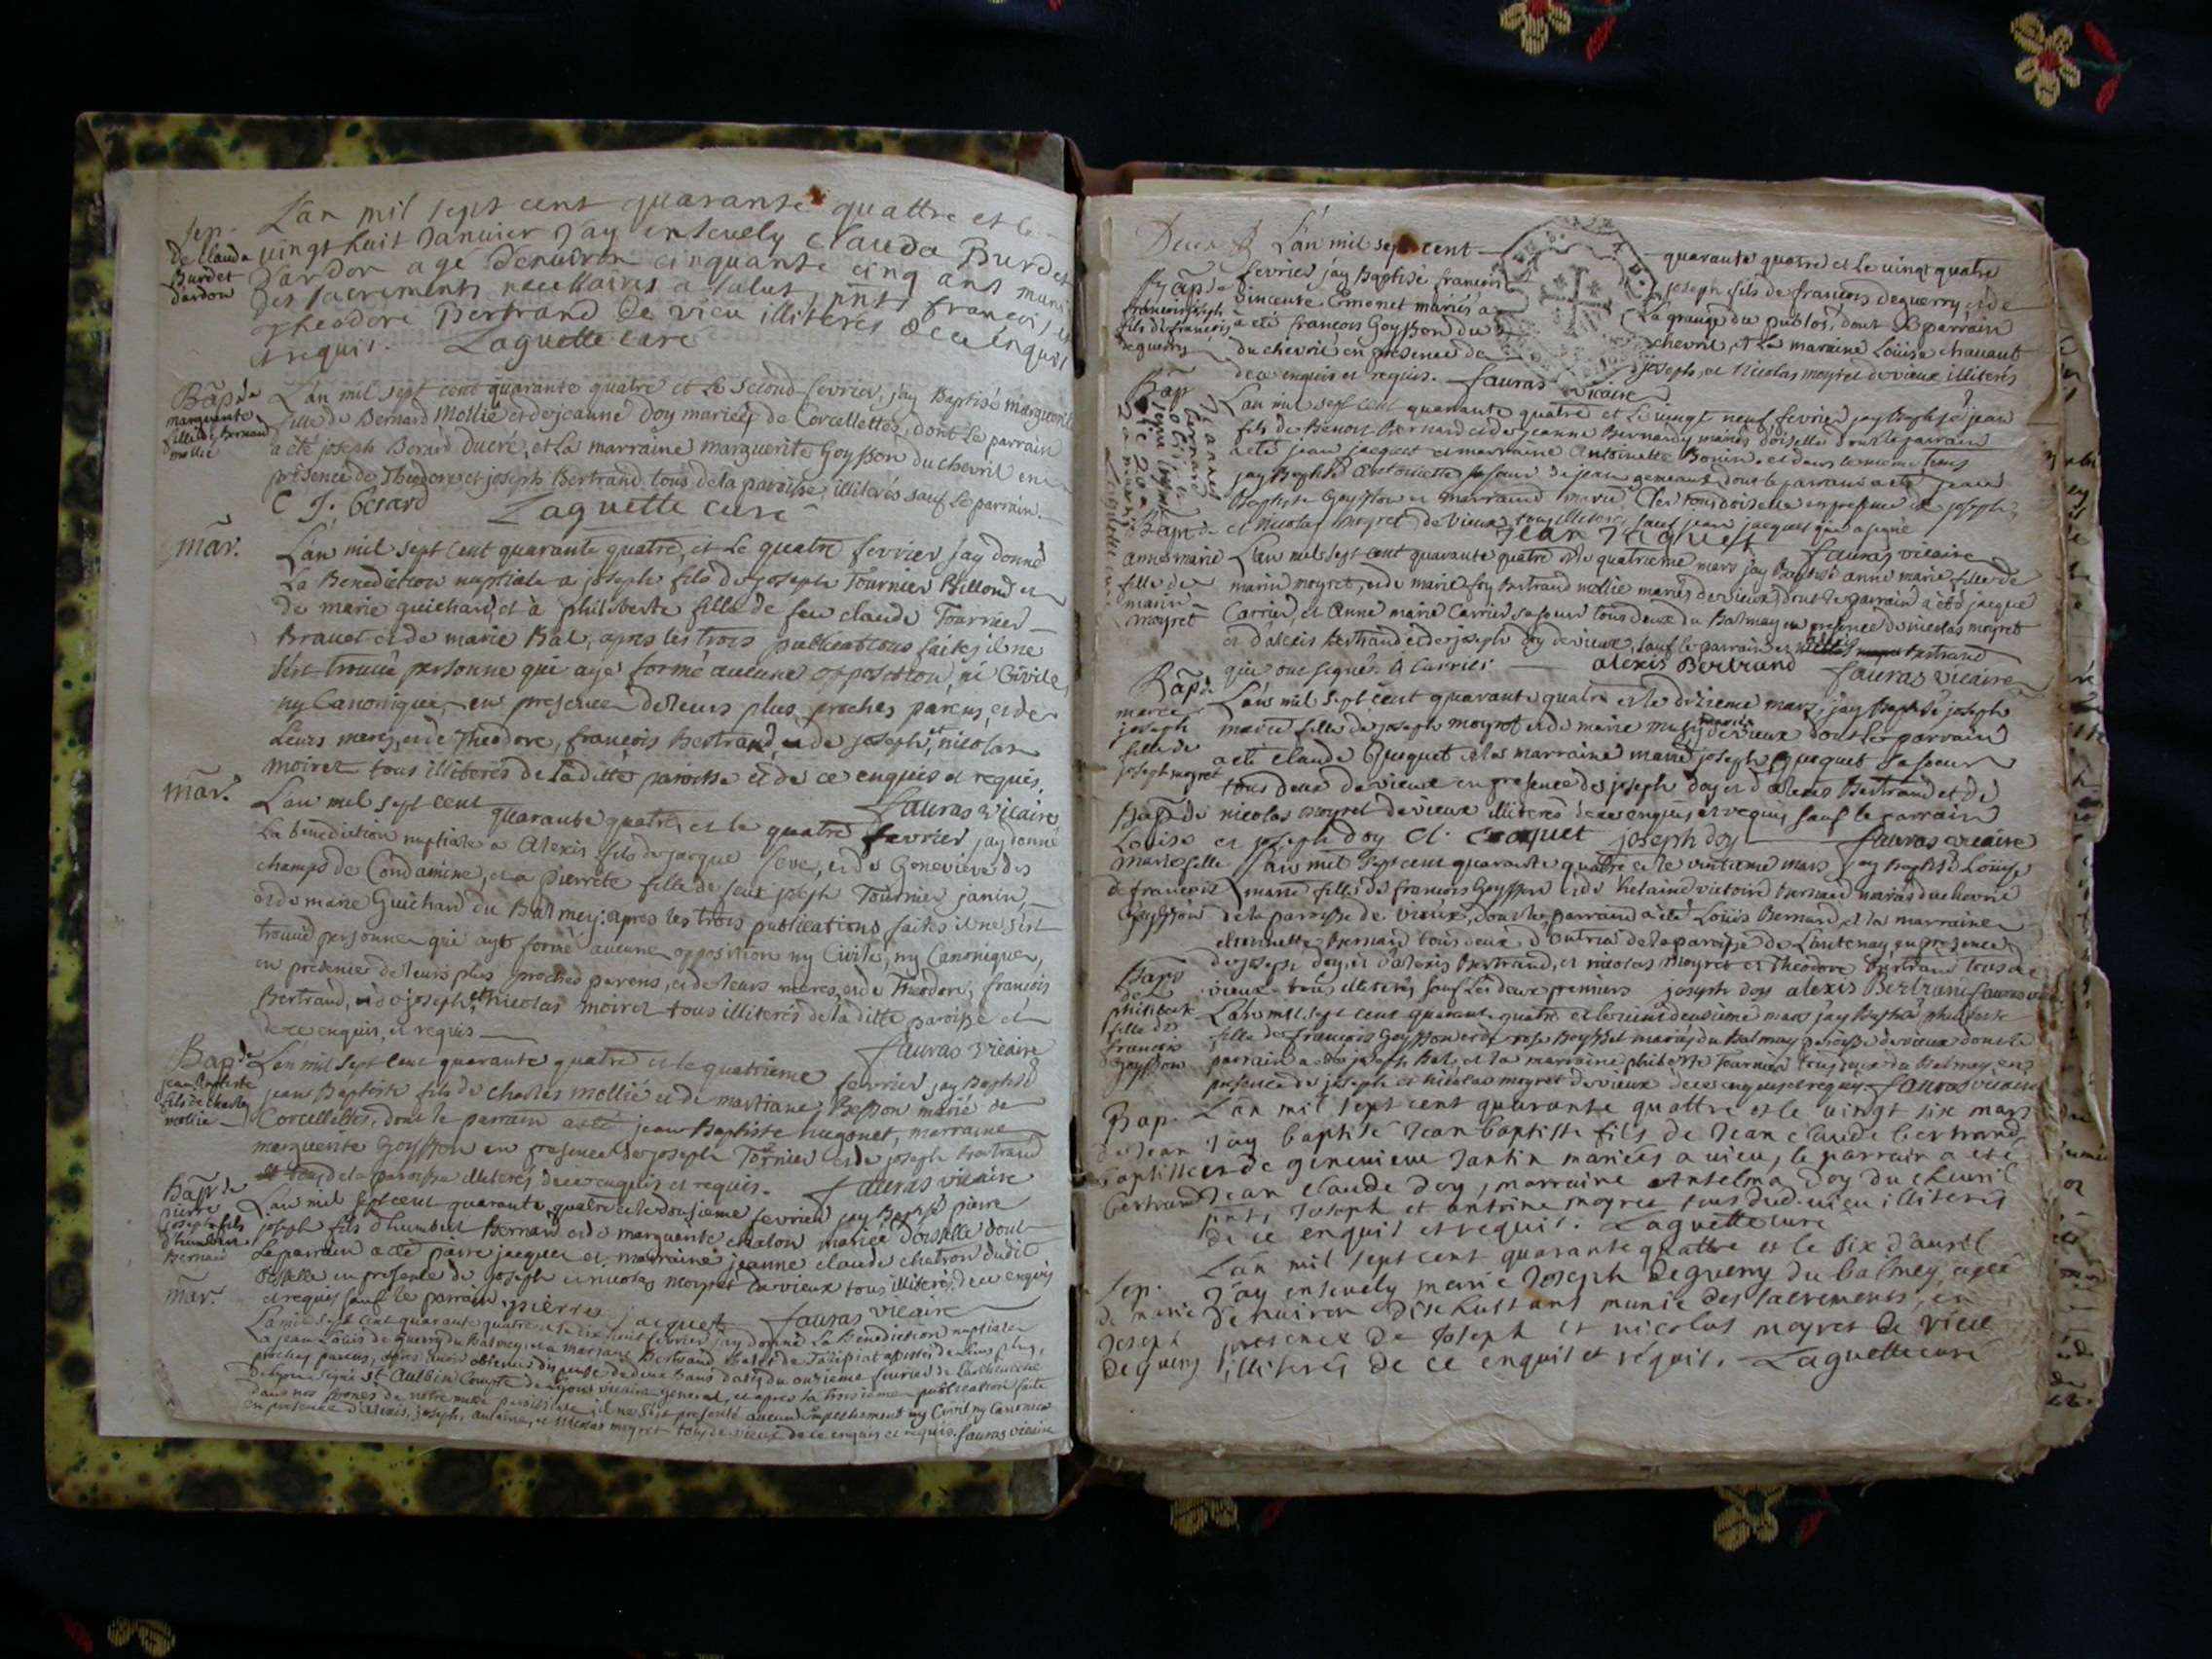 L'an mil sept cent quarante quattre et le
sep. vingt huit Janvier J'ay ensevely Clauda Burdet
de Clauda
Burdet
dardon
Dardon agé denuiron cinquante cinq ans muni
des sacrements necessaires a salut, pnts francois, et
Theodore Bertrand de vieu illiterés de ce enquis
et requis. Laguette curé
Bap. de
marguerite
fille de Bernard
mollie
L'an mil sept cent quarante quatre et le second fevrier, j'ay Baptisé marguerite
fille de Bernard Mollie et de jeanne Doy mariés de Corcellettes, dont le parrain
a été joseph Berard ducré, et la marraine marguerite Goysson du chevril en
présence de Theodore et joseph Bertrand tous de la paroisse, illiterés sauf le parrain.
C J. berard Laguette curé
mar. L'an mil sept cent quarante quatre, et le quatre fevrier jay donné
La Benediction nuptiale a joseph fils de joseph Tournier Billond et
de marie guichard, et à philiberte fille de feu claude Tournier
Brauet et de marie Bal, apres les trois publications faites il ne
s'est trouvé personne qui aye formé aucune opposition, ni Civile,
ny Canonique, en presence de leurs plus proches parens, et de
Leurs meres, et de Theodore, francois Bertrand, et de joseph, et nicolas
moiret tous illiterés de la ditte paroisse et de ce enquis et requis.
fauras vicaire
mar. L'an mil sept cent quarante quatre, et le quatre fevrier jay donné
La benediction nuptiale a Alexis fils de jacque seve, et de Genevieve des
champs de Condamine, et a pierrete fille de feu joseph Tournier janin,
et de marie Guichard du Balmey: apres les trois publications faites il ne s'est
trouvé personne qui ayt formé aucune opposition ny Civile, ny Canonique,
en présence de leurs plus proches parens, et de leurs meres, et de Theodore, francois
Bertrand, et de joseph, et nicolas moiret tous illiterés de la ditte paroisse et
de ce enquis, et requis
fauras vicaire
Bap. de
jean Baptiste
fils de charles
mollie
L'an mil sept cent quarante quatre et le quatrieme fevrier jay Baptisé
jean Baptiste fils de charles mollié et de marianne Besson marié de
Corcellettes, dont le parrain a été jean Baptiste hugonet, marraine
marguerite Goysson en presence de joseph Tornier et de joseph Bertrand
tous de la paroisse illiterés de ce enquis et requis. fauras vicaire
Bap. de
pierre
joseph fils
d'humbert
Bernard
L'an mil sept cent quarante quatre et le douzieme fevrier jay Baptisé pierre
joseph fils d'humbert Bernard et de marguerite chalon mariés d'oiselle dont
Le parrain a été pierre jacquet et marraine jeanne claude chatron dudit
oiselle en presence de joseph et nicolas moyret de vieux tous illiterés de ce enquis
et requis sauf le parrain. pierre jacquet fauras vicaire
mar. L'an mil sept cent quarante quatre et le dix huit fevrier jay donné La Benediction nuptiale
a jean Louis de guerry du Balmey, et a marianne Bertrand
proches parens, apres avoir obtenu dispense de deux bans datés du onzieme fevrier
signé St Aulbin Compte de Lyon vicaire general, et apres la troisieme publication faite
dans nos prones de notre messe paroissiale il ne s'est presenté aucun empechement ny Civil ny Canonique
en presence d'alexis, joseph, antoine, et nicolas moyret tous de vieux de ce enquis et requis. fauras vicaire
L'an mil sept cent quarante quatre et le vingt quatre
Bap. de
francois joseph
fils de francois
deguerry
fevrier j'ay Baptisé francois joseph fils de francois deguerry et de
vincente Emonet mariés a La grange du publos, dont le parrain
a eté francois Goysson du chevril, et La maraine Louise chavant
du chevril en presence de joseph, et nicolas moyret de vieux illiterés
de ce enquis et requis. fauras vicaire
Bap.
L'an mil sept cent quarante quatre et Le vingt neuf fevrier jay Baptisé jean
fils de Benoit Bernard et de jeanne Bernardy mariés d'oiselle dont le parrain
a eté jean jacquet et marraine antoinette Bonin. et dans le meme tems
jay Baptisé antoinette sa soeur de jean gemeaux, dont le parrain a eté jean
Baptiste Goysson et marraine marie tous d'oiselle en presence de joseph,
et nicolas moyret de vieux tous illiterés, sauf jean jacquet qui a signé
Jean Jaquet fauras vicaire
Bap. de
anne marie
fille de
marin
moyret
L'an mil sept cent quarante quatre et le quatrieme mars jay Baptisé anne marie fille de
marin moyret, et de marie foy Bertrand mollie mariés de vieux, dont le parrain a eté jacque
Carrier, et Anne marie Carrier sa soeur tous deux du Balmay en presence de nicolas moyret
et d'alexis Bertrand et de joseph doy de vieux, sauf le parrain et alexis Bertrand
qui ont signé. Carrier alexis Bertrand fauras vicaire
Bap. de
marie
joseph
fille de
joseph moyret
L'an mil sept cent quarante quatre et le dixieme mars, jay Baptisé joseph
marie fille de joseph moyret et de marie mariés de vieux dont Le parrain
a eté claude Crequet et la marraine marie joseph Crequet sa soeur
tous deux de vieux en presence de joseph doy et d'alexis Bertrand et de
nicolas moyret de vieux illiterés de ce enquis, et requis sauf le parrain
et joseph doy Cl. Croquet joseph doy fauras vicaire
Bap. de
Louise
marie fille
de francois
Goysson
L'an mil sept cent quarante quatre et le vintieme mars jay Baptisé Louise
marie fille de francois Goysson et de helaine victoire Bernard mariés du chevril
de la paroisse de vieux, dont le parrain a eté Louis Bernard, et la marraine
etiennette Bernard tous deux d'outria de la paroisse de Lantenay en presence
de joseph doy, et d'alexis Bertrand, et nicolas moyret et Theodore Bertrand tous de
vieux tous illiterés sauf Les deux premiers joseph doy alexis Bertrand fauras vicaire
Bap.
de
philiberte
fille de
francois
Goysson
L'an mil sept cent quarante quatre et le vint deuxieme mars jay Baptisé philiberte
fille de francois Goysson et de rose Boysset mariés du Balmay paroisse de vieux dont le
parrain a eté joseph Bal, et la marraine philiberte Tournier tous deux du Balmay en
presence de joseph et nicolas moyret de vieux de ce enquis et requis. fauras vicaire
Bap.
de Jean
baptiste
bertrand
L'an mil sept cent quarante quattre et le vingt six mars
J'ay baptisé Jean baptiste fils de Jean claude bertrand
et de genevieve Jantin mariés a vieu, le parrain a eté
Jean claude Doy, marraine Antelma Doy du chevril
pnts Joseph et antoine moyret tous dud. vieu illiterés
de ce enquis et requis. Laguette curé
L'an mil sept cent quarante quattre et le six d'avril
sep.
de marie
Joseph
Deguerry
J'ay ensevely marie Joseph Deguerry du balmey, agée
denuiron dix huit ans munie des sacrements, en
presence de Joseph et nicolas moyret de vieu
illiterés de ce enquis et requis. Laguette curé